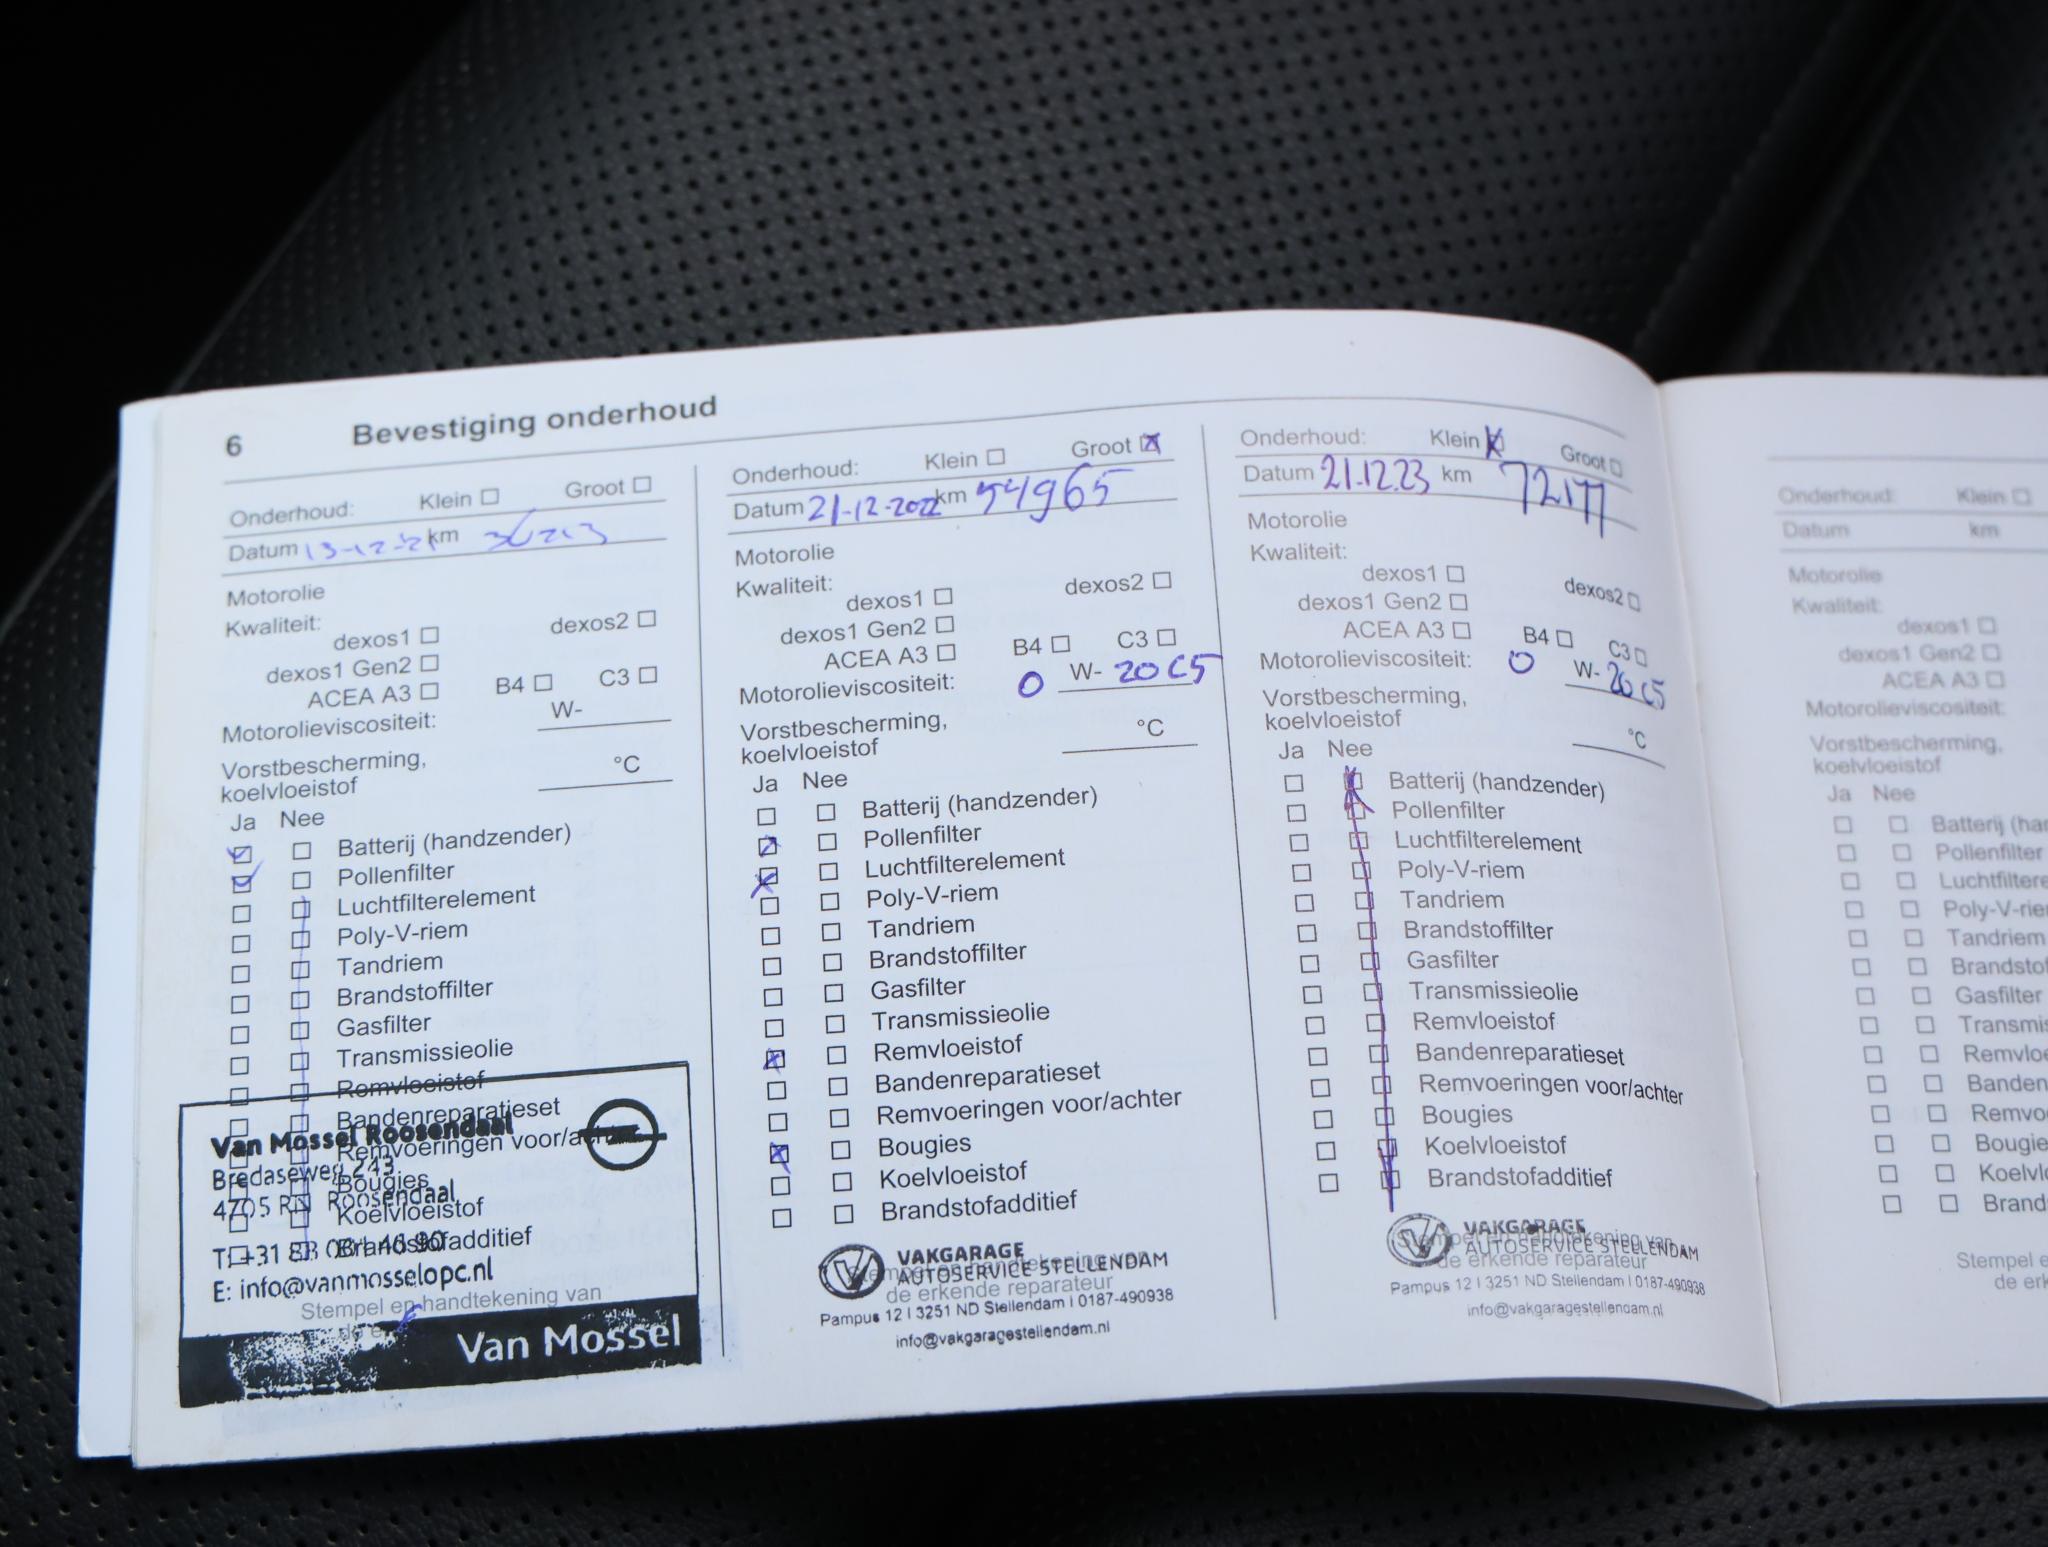 6 Bevestiging onderhoud
Onderhoud: Klein ☐ Groot ☐
Datum 13-12-21 km
Motorolie
Kwaliteit:
dexos1 ☐ dexos2 ☐
dexos1 Gen2 ☐
ACEA A3 ☐ B4 ☐ C3 ☐
Motorolieviscositeit: W-
Vorstbescherming,
koelvloeistof °C
Ja Nee
Batterij (handzender)
Pollenfilter
Luchtfilterelement
Poly-V-riem
Tandriem
Brandstoffilter
Gasfilter
Transmissieolie
Remvloeistof
Bandenreparatieset
Remvoeringen voor/achter
Bougies
Koelvloeistof
Brandstofadditief
Van Mossel Roosendaal
Bredaseweg 243
4705 RN Roosendaal
T: +31
E: info@vanmosselopc.nl
Stempel en handtekening van
Van Mossel
Onderhoud: Klein ☐ Groot ☒
Datum 21-12-2022 km 54965
Motorolie
Kwaliteit:
dexos1 ☐ dexos2 ☐
dexos1 Gen2 ☐
ACEA A3 ☐ B4 ☐ C3 ☐
Motorolieviscositeit: 0 W- 20 C5
Vorstbescherming,
koelvloeistof °C
Ja Nee
Batterij (handzender)
Pollenfilter
Luchtfilterelement
Poly-V-riem
Tandriem
Brandstoffilter
Gasfilter
Transmissieolie
Remvloeistof
Bandenreparatieset
Remvoeringen voor/achter
Bougies
Koelvloeistof
Brandstofadditief
VAKGARAGE
AUTOSERVICE STELLENDAM
Stempel en handtekening van
de erkende reparateur
Pampus 12 | 3251 ND Stellendam | 0187-490938
info@vakgaragestellendam.nl
Onderhoud: Klein ☒ Groot ☐
Datum 21.12.23 km 72177
Motorolie
Kwaliteit:
dexos1 ☐ dexos2 ☐
dexos1 Gen2 ☐
ACEA A3 ☐ B4 ☐ C3 ☐
Motorolieviscositeit: 0 W- 20 C5
Vorstbescherming,
koelvloeistof °C
Ja Nee
Batterij (handzender)
Pollenfilter
Luchtfilterelement
Poly-V-riem
Tandriem
Brandstoffilter
Gasfilter
Transmissieolie
Remvloeistof
Bandenreparatieset
Remvoeringen voor/achter
Bougies
Koelvloeistof
Brandstofadditief
VAKGARAGE
AUTOSERVICE STELLENDAM
Stempel en handtekening van
de erkende reparateur
Pampus 12 | 3251 ND Stellendam | 0187-490938
info@vakgaragestellendam.nl
Onderhoud: Klein ☐
Datum km
Motorolie
Kwaliteit:
dexos1 ☐
dexos1 Gen2 ☐
ACEA A3 ☐
Motorolieviscositeit:
Vorstbescherming,
koelvloeistof
Ja Nee
Batterij (ha
Pollenfilter
Luchtfiltere
Poly-V-rie
Tandriem
Brandstof
Gasfilter
Transmis
Remvloe
Banden
Remvo
Bougie
Koelvl
Brand
Stempel e
de erk